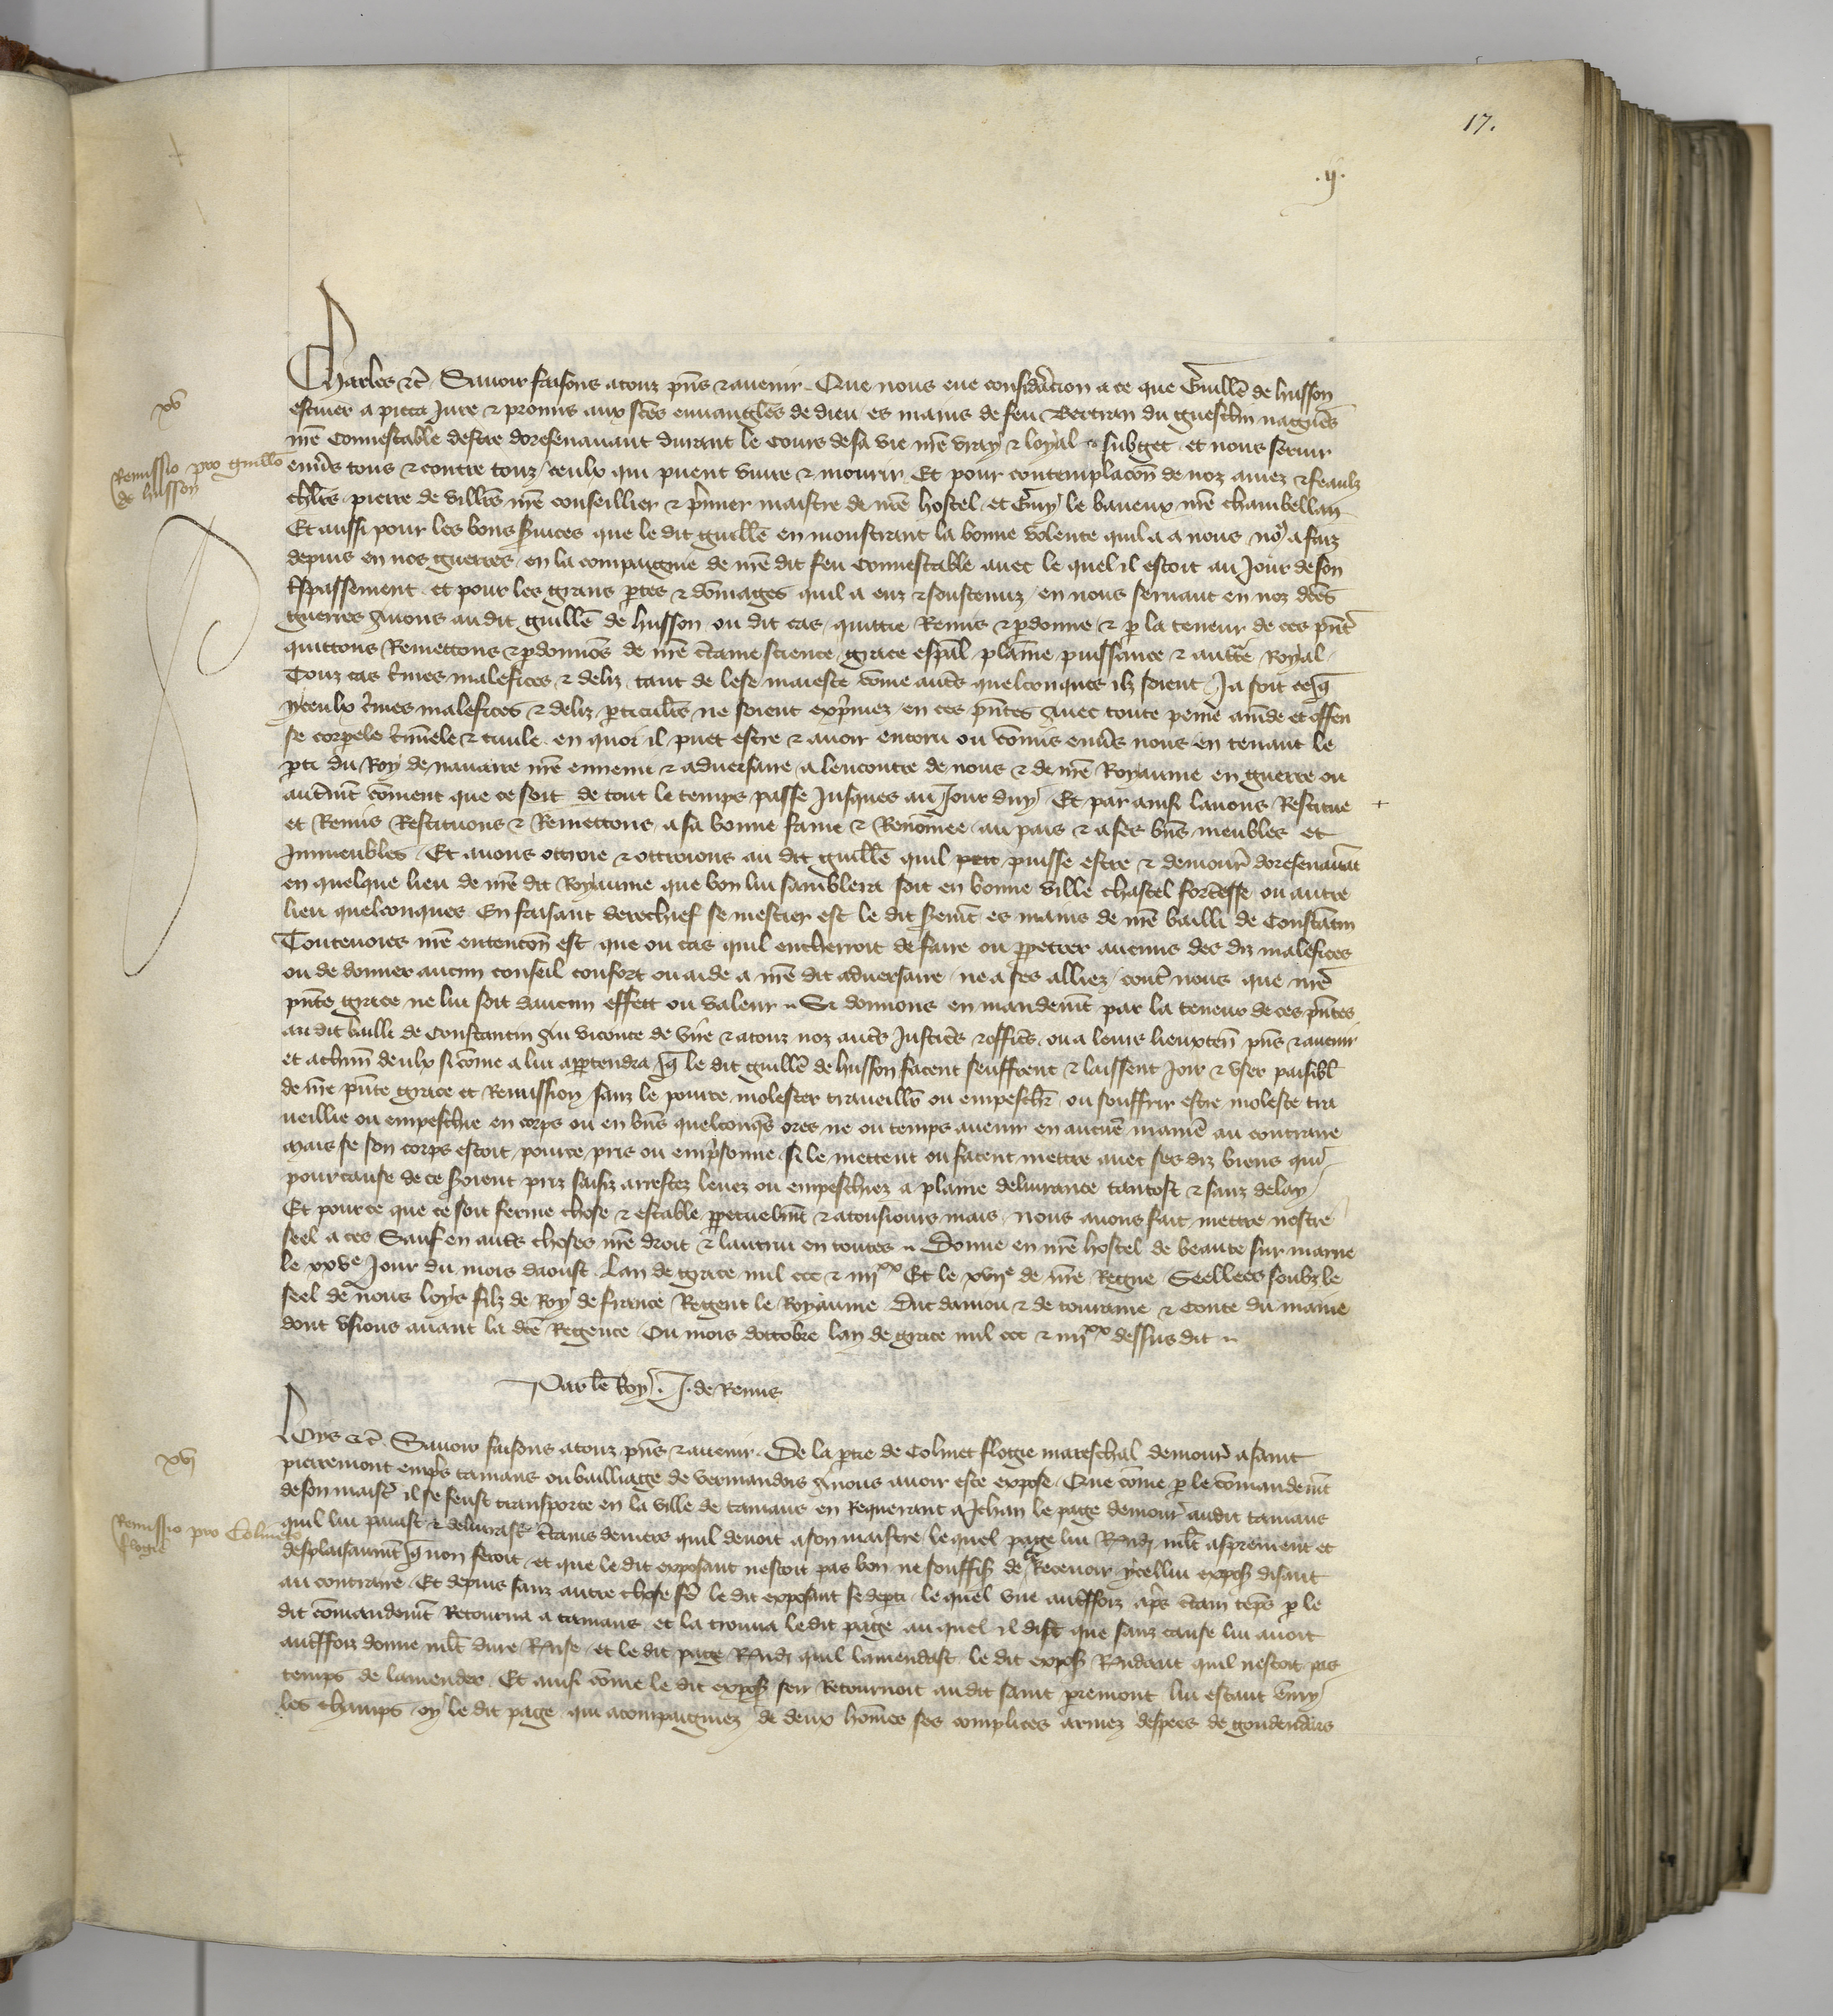 17.
.ij.
Charles etc̃ Sauoir faisons a touz pñs et auenir Que nous eue considẽracion a ce que Guillẽ de husson
escuier a pieca Jure et promis aux stẽs euuangilẽs de dieu es mains de feu Bertran du guesclin nagueẽs
nrẽ Connestable destre doresenauant durant le cours de sa vie nrẽ vray et loyal subget et nous seruir
enuẽrs tous et contre touz ceulx qui puent viure et mourir Et pour contemplacõn de noz amez et feaulx
chlrs̃ pierre de villers̃ nrẽ conseillier et pr̃mier maistre de nrẽ hostel et Guy le baueux nrẽ chambellan
Et aussi pour les bons seruices que le dit guillẽ en monstrant la bonne volente quil a a nous a faiz
depuis en nos guerres en la compaignie de nrẽ dit feu Connestable auec le quel il estoit au Jour de son
trespassement et pour les grans ptes et dõmages quil a euz et soustenuz en nous seruant en noz dcẽs
guerres auons au dit guillẽ de husson ou dit cas quittie Remis et pdonne et p la teneur de ces pñts̃
quittons Remettons et pdonnõs de nrẽ c̃taine science grace esp̃al plaine puissance et auctẽ Royal
Touz cas c̃mes malefices et deliz tant de lese maieste cõme autẽs quelconques ilz soient Ja soit ce q̃
yceulx c̃mes malefices et deliz pticulrs̃ ne soient expr̃mez en ces pñtes auec toute peine amẽde et offen
se corpele c̃minele et ciuile en quoi il puet estre et auoir encoru ou cõmis enuẽrs nous en tenant le
pti du Roy de nauarre nrẽ ennemi et aduersaire a lencontre de nous et de nrẽ Royaume en guerre ou
autremẽt cõment que ce soit de tout le temps passe Jusques au Jour duy Et par ainsi lauons Restitue +
et Remis Restituons et Remettons a sa bonne fame et Renõmee au pais et a ses bñs meubles et
Immeubles Et auons ottroie et ottroions au dit guillẽ quil puisse estre et demourer̃ doresenauãt
en quelque lieu de nrẽ dit Royaume que bon lui samblera soit en bonne ville chastel fortẽsse ou autre
lieu quelconques En faisant derechief se mestier est le dit seremẽt es mains de nrẽ bailli de Constãtin
Toutevoies nrẽ entencõn est que ou cas quil encherroit de faire ou ppetrer aucuns des diz malefices
ou de donner aucun conseil confort ou aide a nrẽ dit aduersaire ne a ses alliez contr̃ nous que nrẽ
pñte grace ne lui soit daucun effect ou valeur Si donnons en mandemẽt par la teneur de ces pñtes
au dit bailli de Constantin au viconte de vire et a touz noz autẽs Justicẽs et officẽs ou a leurs lieuxtenñ pñs et auenir
et a chũn deulx si cõme a lui appartendra q̃ le dit guillẽ de husson facent seuffrent et laissent joir et vser paisiblẽ
de nrẽ pñte grace et Remission sanz le poursre molester traueillr̃ ou empeschr̃ ou souffrir estre moleste tra
ueillie ou empeschie en corps ou en bñs quelconq̃s ores ne ou temps auenir en aucune maniẽ au contraire
Mais se son corps estoit pource pris ou empr̃sonne si le mettent ou facent mettre auec ses diz biens qui
pour cause de ce seroient priz saisiz arrestez leuez ou empeschiez a plaine deliurance tantost et sanz delay
Et pour ce que ce soit ferme chose et estable ppetuelmẽt et a tousiours mais nous auons fait mettre nostre
seel a ces Sauf en autẽs choses nrẽ droit et lautrui en toutes Donne en nrẽ hostel de beaute sur marne
le xxve Jour du mois daoust Lan de grace mil ccc et iiijxx Et le xvije de nrẽ Regne Seellees soubz le
seel de nous loys filz de Roy de france Regent le Royaume Duc daniou et de touraine et Conte du maine
dont vsions auant la dcẽ Regence Ou mois dottobre lan de grace mil ccc et iiijxx dessus dit
Par le Roy J. de Reims
Loys etc̃ Sauoir faisons a touz pñs et auenir De la ptie de Colinet flogie mareschal demourr̃ a saint
pierremont empr̃s tamaus ou bailliage de vermandois a nous auoir este expose Que cõme p le cõmandemẽt
de son maistr̃ il se feust transporte en la ville de tamaus en Requerant a Jehan le page demourr̃ audit tamaus
quil lui paiast et deliurast c̃tains deniers quil deuoit a son maistre le quel page lui Rñdi mlt̃ asprement et
desplaisamẽt q̃ non feroit et que le dit exposant nestoit pas bon ne souffis̃ de le Receuoir ycellui expos̃ disant
au contraire Et depuis sanz autre chose fẽ le dit exposant se depti le quel vne autẽffoiz apr̃s c̃tain tẽps p le
dit cõmandemẽt Retourna a tamaus et la trouua le dit page au quel il dist que sanz cause lui auoit
autẽffoiz donne mlt̃ dure Rñse et le dit page Rñdi quil lamendast le dit expos̃ Rñdant quil nestoit pas
temps de lamender Et ainsi cõme le dit expos̃ sen Retournoit au dit saint piremont lui estant enmy
les champs oy le dit page qui acompaignez de deux hõmes ses complices armez despees de goudendars
xv
Remissio pro guillo
de husson
xvj
Remissio pro Colineto
flogie